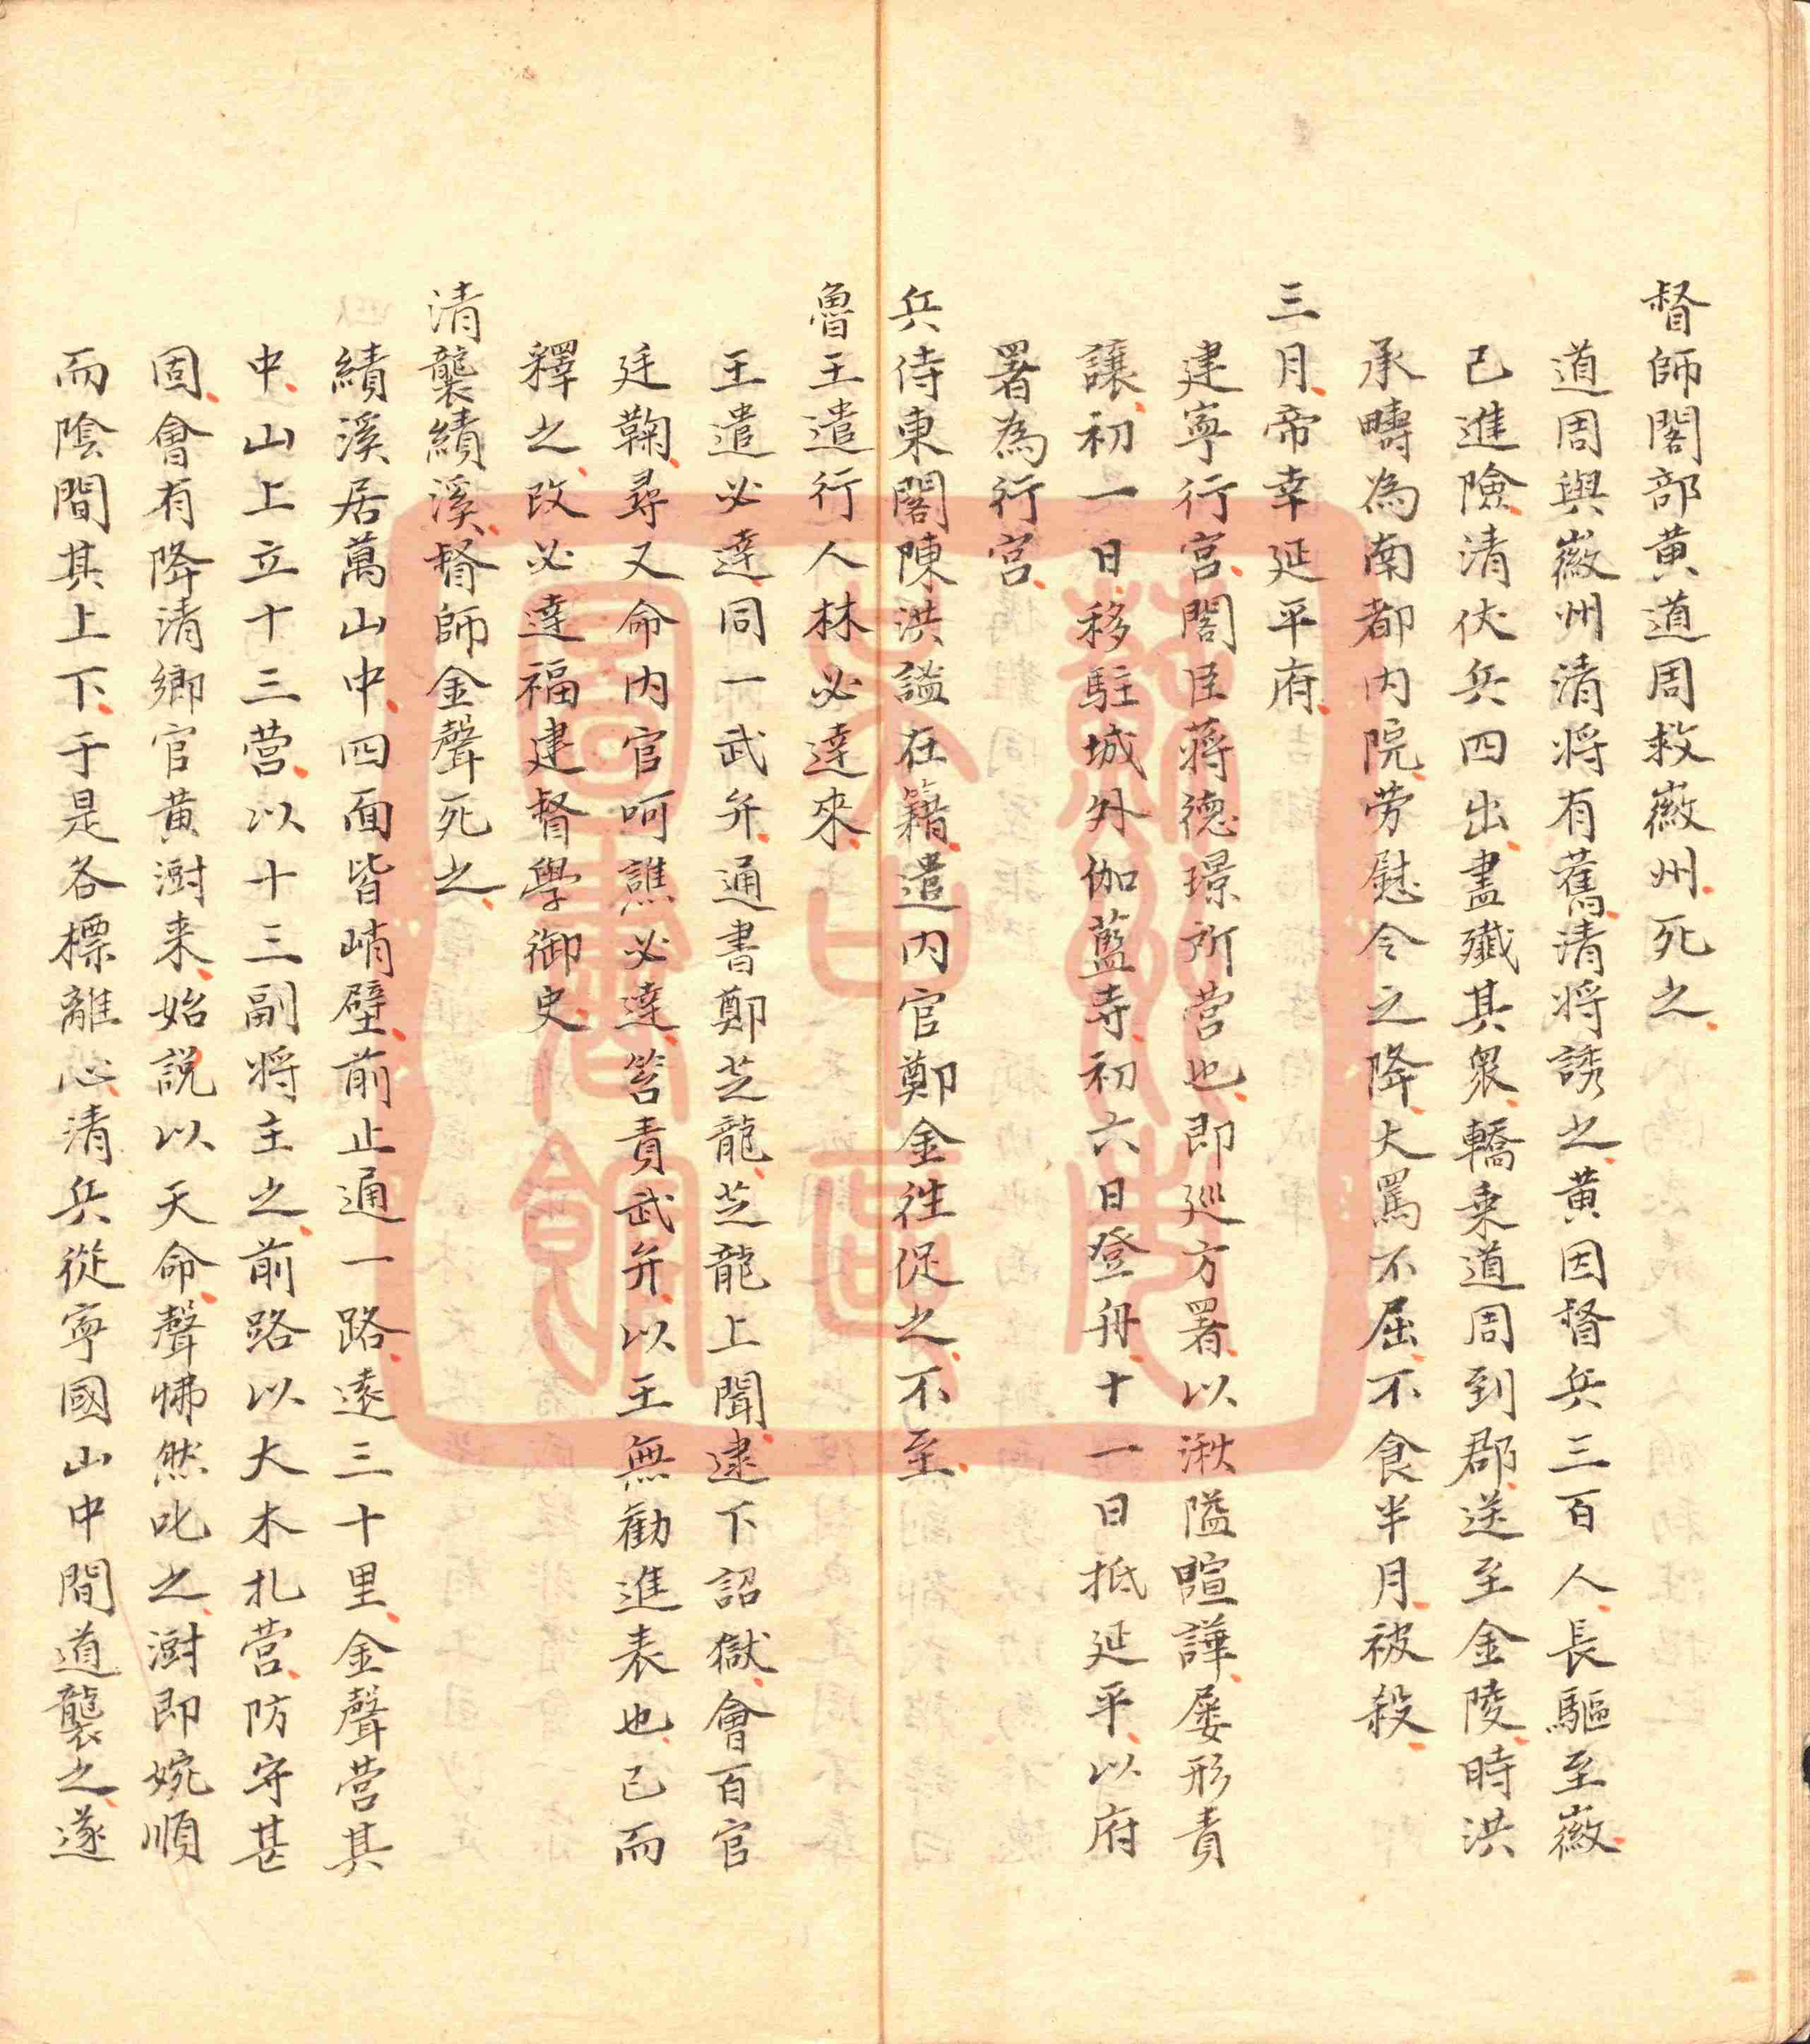 督師閣部黄道周救徽州死之
道周與徽州清将有舊清将誘之黄因督兵三百人長驅至徽
已進險清伏兵四出盡殲其衆轎乗道周到郡送至金陵時洪
承疇為南都内院劳慰令之降大罵不屈不食半月被殺
三月帝幸延平府
建寧行宫閣臣蔣德璟所营也即廵方署以湫隘諠譁屡形責
讓初一日移駐城外伽藍寺初六日登舟十一日抵延平以府
署為行宫
兵侍東閣陳洪謐在籍遣内官鄭金徃促之不至
魯王遣行人林必達來
王遣必達同一武弁通書鄭芝龍芝龍上聞逮下詔獄會百官
廷鞫尋又命内官呵譙必達笞責武弁以王無勸進表也已而
釋之改必達福建督學御史
清襲績溪督師金聲死之
績溪居萬山中四面皆峭壁前止通一路遠三十里金聲营其
中山上立十三营以十三副将主之前路以大木扎营防守甚
固會有降清鄉官黄澍来始説以天命聲怫然叱之澍即婉順
而陰間其上下于是各標離心清兵從寧國山中間道襲之遂